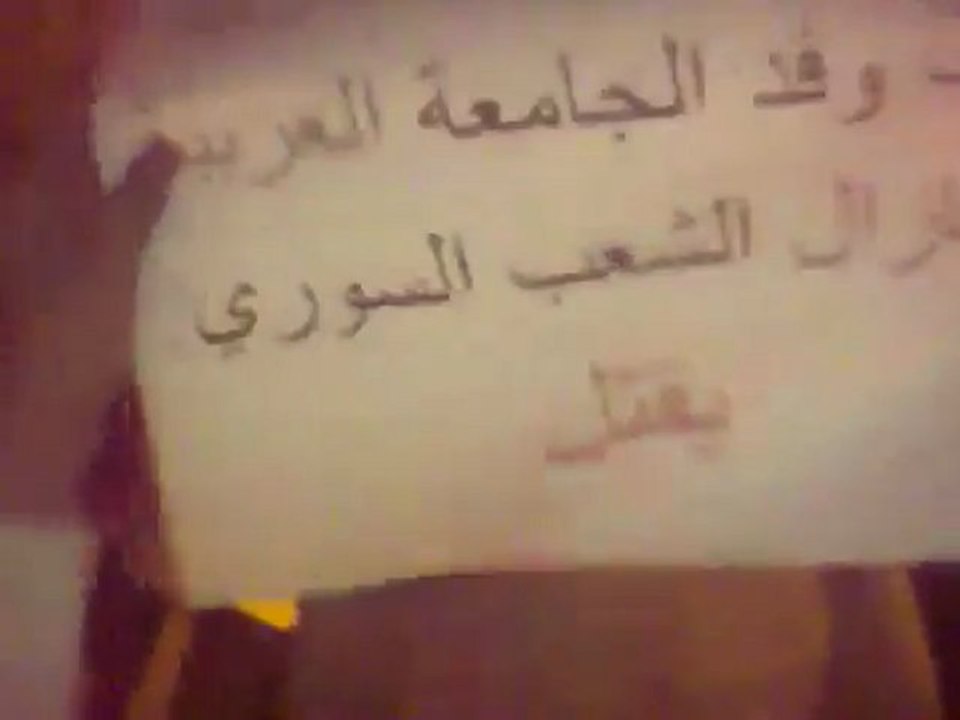 - وفد الجامعة العربية
زال الشعب السوري
يقتل